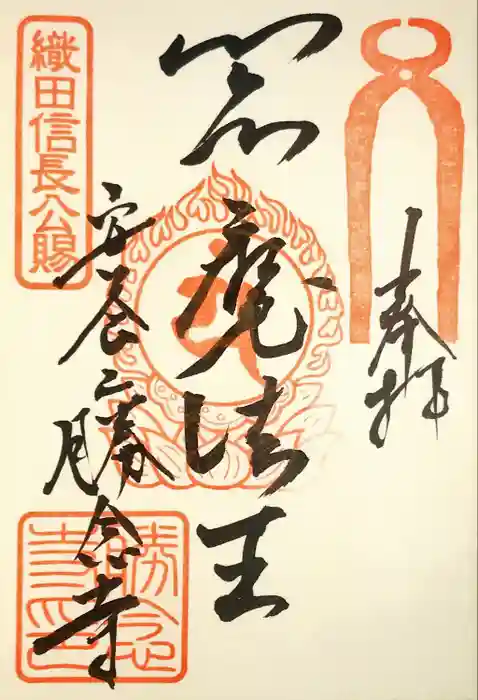 奉拝
閻魔法王
安養山勝念寺
織田信長公賜
勝念
寺印